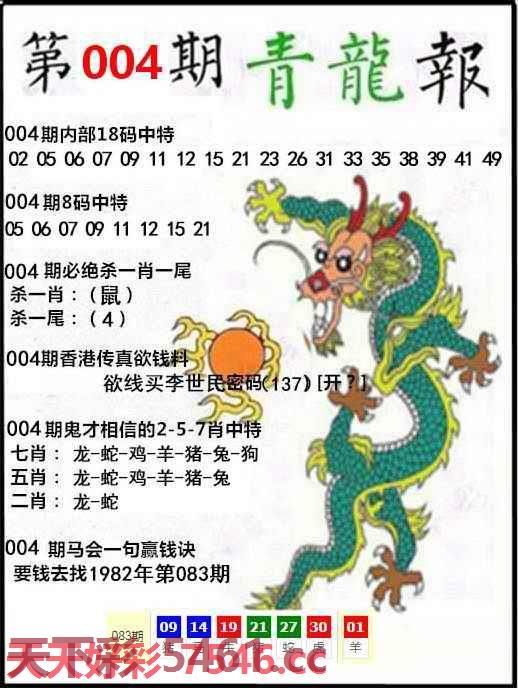 第004期青龍報
004期内部18码中特
02 05 06 07 09 11 12 15 21 23 26 31 33 35 38 39 41 49
004期8码中特
05 06 07 09 11 12 15 21
004期必绝杀一肖一尾
杀一肖：（鼠）
杀一尾：（4）
004期香港传真欲钱料
欲线买李世民密码(137) [开？]
004期鬼才相信的2-5-7肖中特
七肖： 龙-蛇-鸡-羊-猪-兔-狗
五肖： 龙-蛇-鸡-羊-猪-兔
二肖： 龙-蛇
004期马会一句赢钱诀
要钱去找1982年第083期
083期 09 14 19 21 27 30 01
羊
天天好彩57546.cc